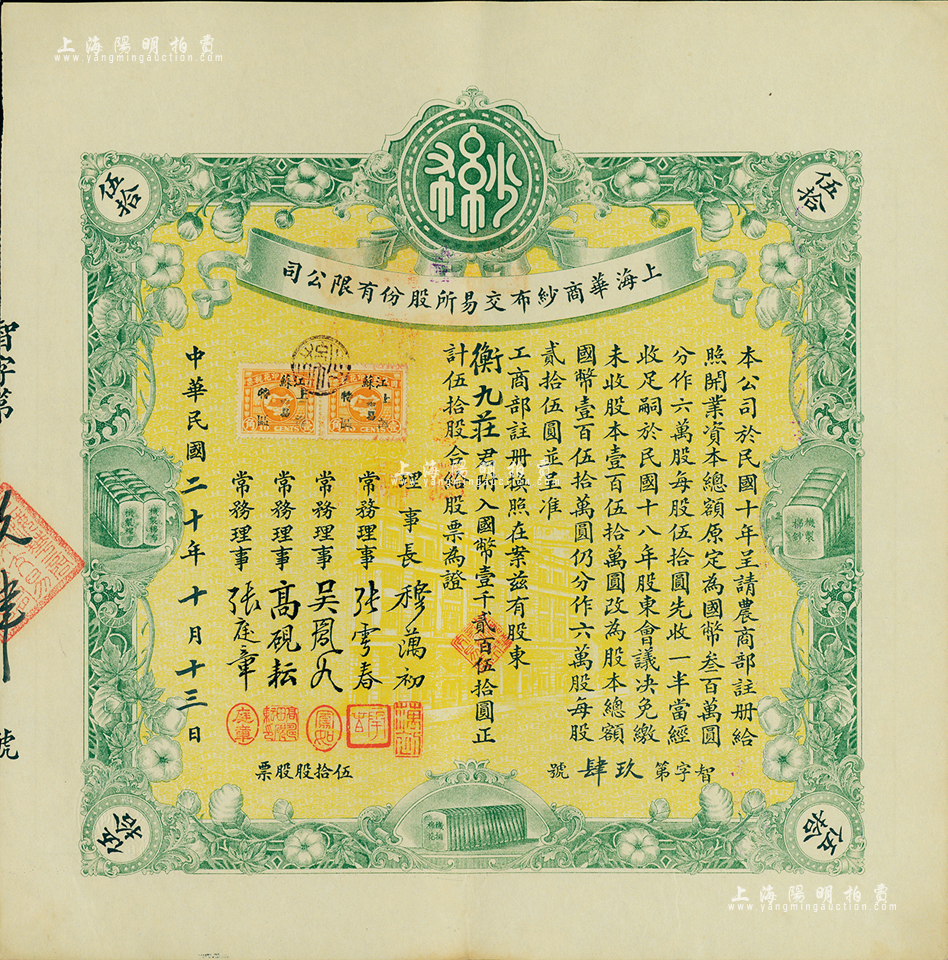 上海陽明拍賣
www.yangmingauction.com
紗布
伍拾
伍拾
上海華商紗布交易所股份有限公司
本公司於民國十年呈請農商部註册給
照開業資本總額原定為國幣叁百萬圓
分作六萬股每股伍拾圓先收一半當經
收足嗣於民國十八年股東會議决免繳
未收股本壹百伍拾萬圓改為股本總額
國幣壹百伍拾萬圓仍分作六萬股每股
貳拾伍圓並呈准
工商部註册換照在案兹有股東
衡九莊君附入國幣壹千貳百伍拾圓正
計伍拾股合給股票為證
理事長 穆藕初
常務理事 張雩春
常務理事 吳鳳如
常務理事 高硯耘
常務理事 張庭章
中華民國二十年十月十三日
江蘇
上海
特區
10 CENTS
江蘇
上海
特區
10 CENTS
機製棉紗
機製棉布
機製棉布
智字第玖肆號
伍拾股股票
棉花
伍拾
伍拾
智字第
玖肆
號
上海陽明拍賣
www.yangmingauction.com
上海陽明拍賣
www.yangmingauction.com